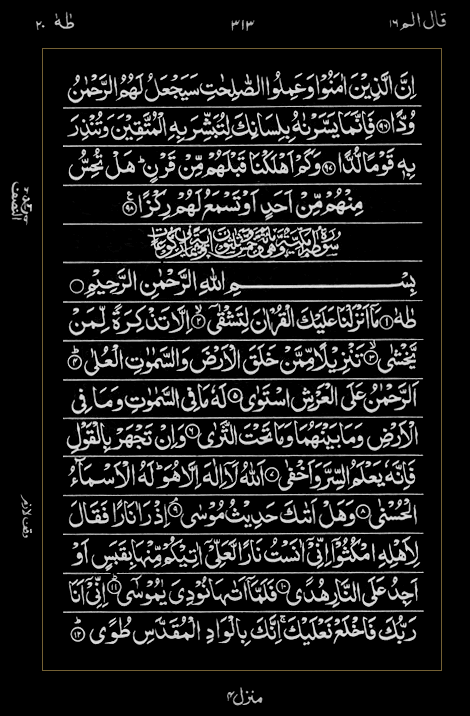 قال الم ١٦
٣١٣
طٰهٰ ٢٠
اِنَّ الَّذِیْنَ اٰمَنُوْا وَعَمِلُوا الصّٰلِحٰتِ سَیَجْعَلُ لَهُمُ الرَّحْمٰنُ
وُدًّا ۝٩٦ فَاِنَّمَا یَسَّرْنٰهُ بِلِسَانِكَ لِتُبَشِّرَ بِهِ الْمُتَّقِیْنَ وَتُنْذِرَ
بِهٖ قَوْمًا لُّدًّا ۝٩٧ وَكَمْ اَهْلَكْنَا قَبْلَهُمْ مِّنْ قَرْنٍ ؕ هَلْ تُحِسُّ
مِنْهُمْ مِّنْ اَحَدٍ اَوْ تَسْمَعُ لَهُمْ رِكْزًا ۝٩٨
بِسْمِ اللهِ الرَّحْمٰنِ الرَّحِیْمِ ۝
طٰهٰ ۝١ مَاۤ اَنْزَلْنَا عَلَیْكَ الْقُرْاٰنَ لِتَشْقٰۤی ۝٢ اِلَّا تَذْكِرَةً لِّمَنْ
یَّخْشٰی ۝٣ تَنْزِیْلًا مِّمَّنْ خَلَقَ الْاَرْضَ وَالسَّمٰوٰتِ الْعُلٰی ۝٤
اَلرَّحْمٰنُ عَلَی الْعَرْشِ اسْتَوٰی ۝٥ لَهٗ مَا فِی السَّمٰوٰتِ وَمَا فِی
الْاَرْضِ وَمَا بَیْنَهُمَا وَمَا تَحْتَ الثَّرٰی ۝٦ وَاِنْ تَجْهَرْ بِالْقَوْلِ
فَاِنَّهٗ یَعْلَمُ السِّرَّ وَاَخْفٰی ۝٧ اَللهُ لَاۤ اِلٰهَ اِلَّا هُوَ ؕ لَهُ الْاَسْمَآءُ
الْحُسْنٰی ۝٨ وَهَلْ اَتٰىكَ حَدِیْثُ مُوْسٰی ۝٩ اِذْ رَاٰ نَارًا فَقَالَ
لِاَهْلِهِ امْكُثُوْۤا اِنِّیْۤ اٰنَسْتُ نَارًا لَّعَلِّیْۤ اٰتِیْكُمْ مِّنْهَا بِقَبَسٍ اَوْ
اَجِدُ عَلَی النَّارِ هُدًی ۝١٠ فَلَمَّاۤ اَتٰىهَا نُوْدِیَ یٰمُوْسٰی ۝١١ اِنِّیْۤ اَنَا
رَبُّكَ فَاخْلَعْ نَعْلَیْكَ ۚ اِنَّكَ بِالْوَادِ الْمُقَدَّسِ طُوًی ۝١٢
وقف لازم
منزل ٤